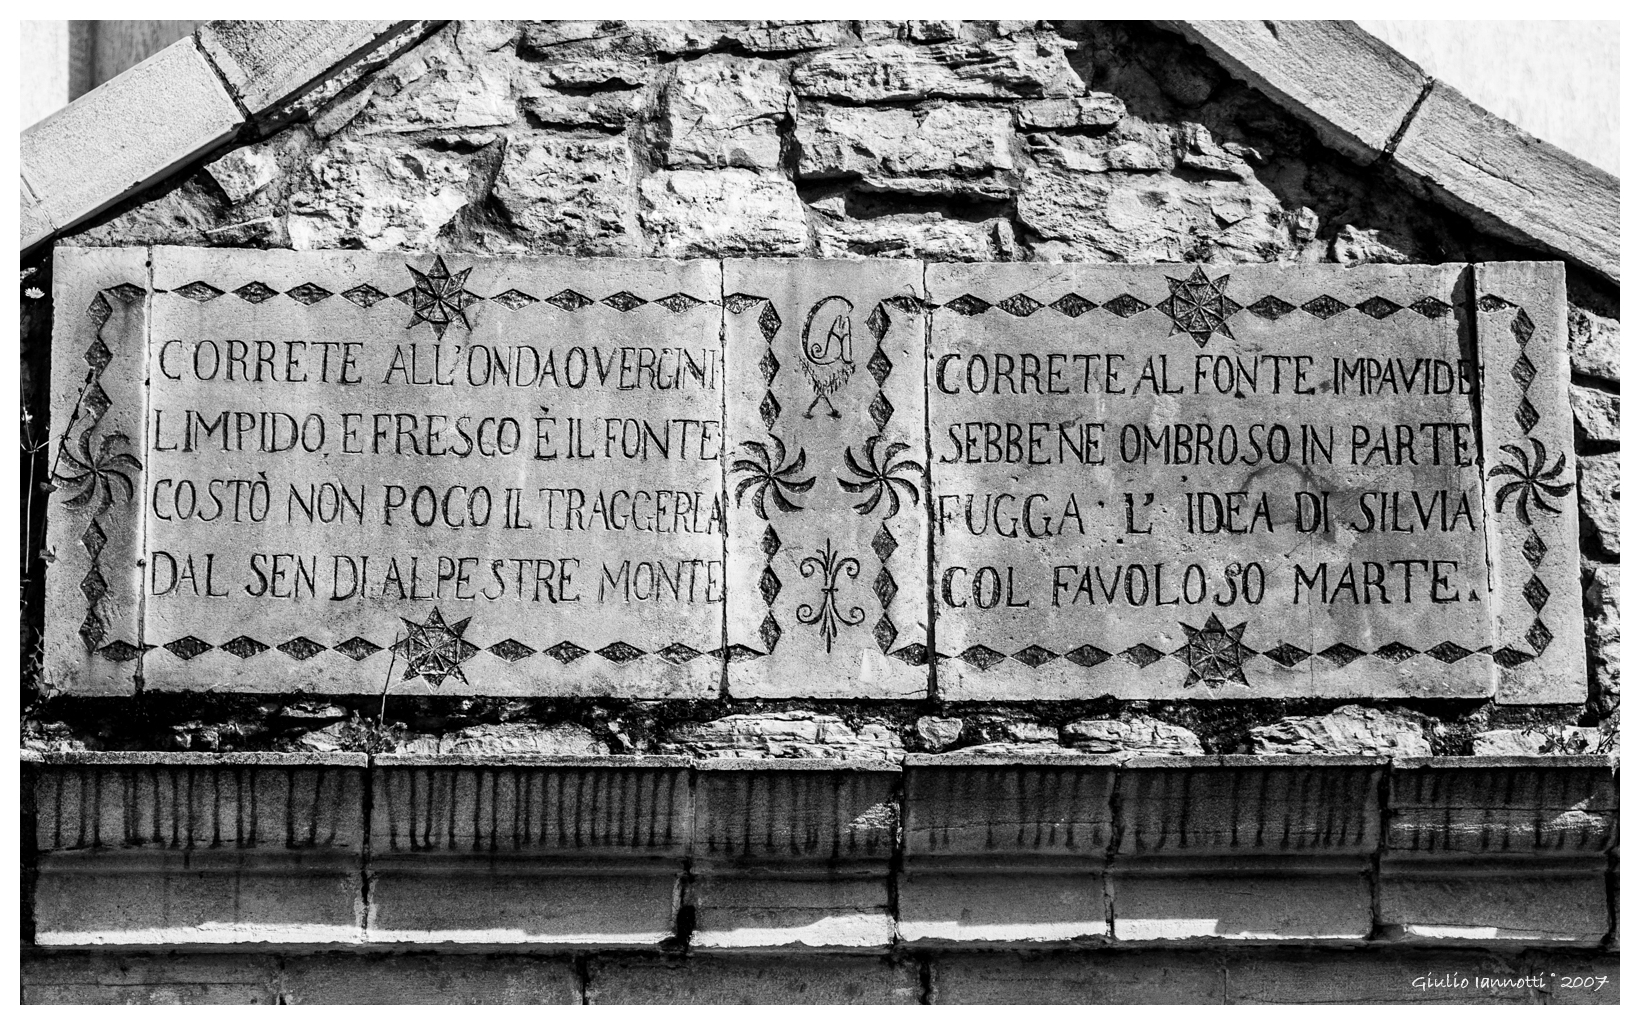 CORRETE ALL'ONDA O VERGINI
LIMPIDO, E FRESCO È IL FONTE
COSTÒ NON POCO IL TRAGGERLA
DAL SEN DI ALPESTRE MONTE
CORRETE AL FONTE IMPAVIDE
SEBBENE OMBROSO IN PARTE
FUGGA L'IDEA DI SILVIA
COL FAVOLOSO MARTE.
Giulio Iannotti ° 2007